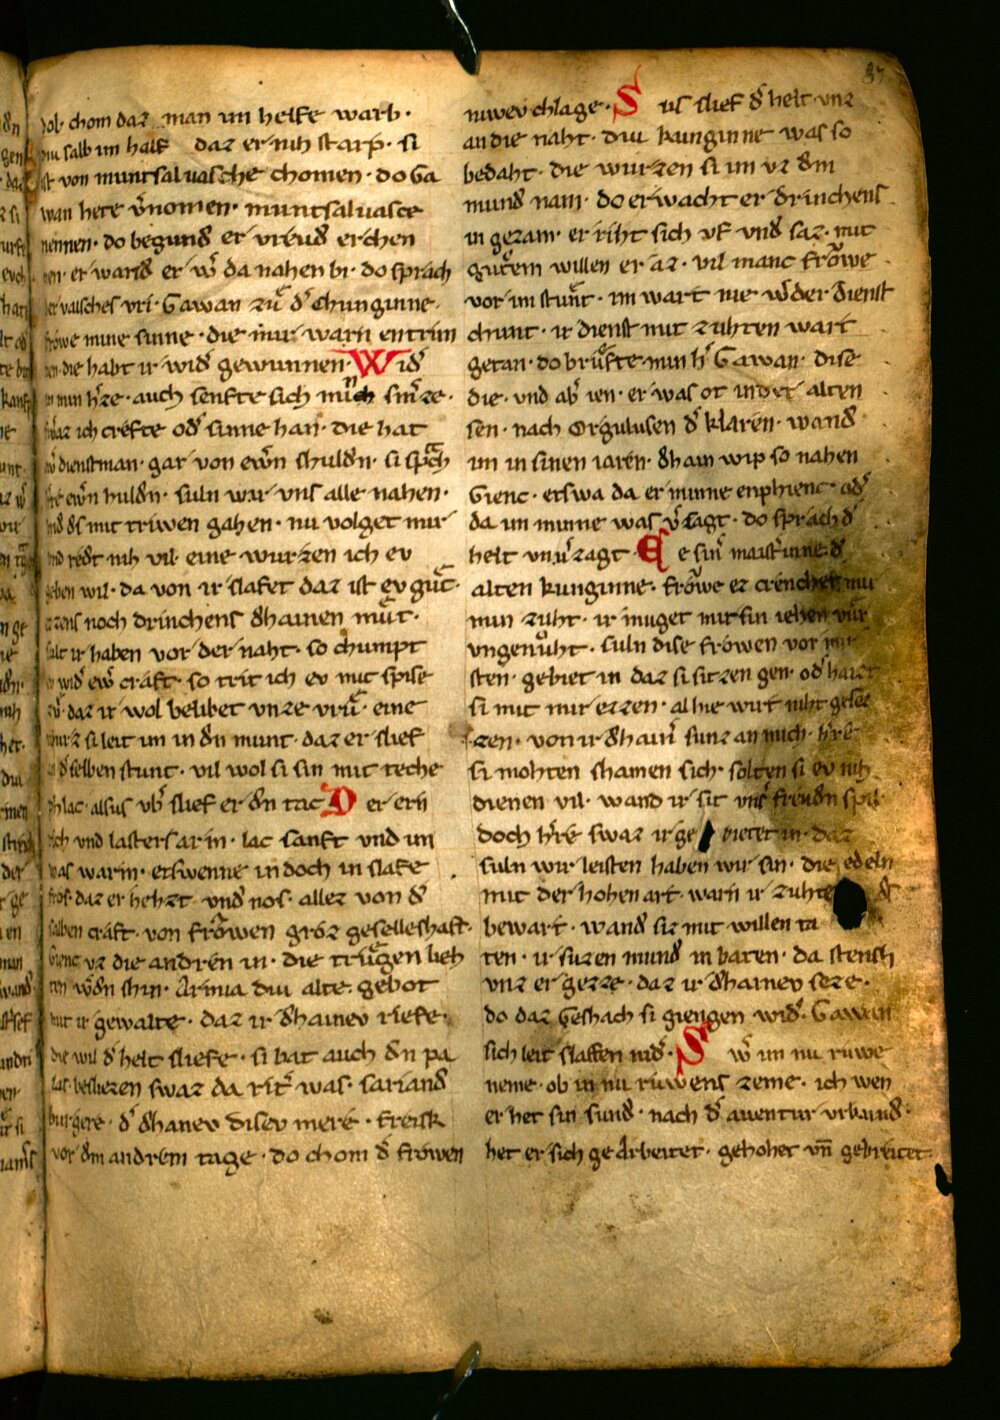 37
dol. chom daz man im helfe warb.
diu salb im half daz er niht starp. si
ist von muntsaluasche chomen. do Ga
wan hete v̄nomen. muntsaluasce
nennen. do begund er vreud erchen
nen. er wand er w̄ da nahen bi. do sprach
der valsches vri. Gawan zů d̄ chunginne.
frowe mine sinne. die mir warn entrun
nen. die habt ir wid gewunnen. Wid
in min h̄ze. auch senfte sich min smrze.
swaz ich crefte od sinne han. die hat
iw̄ dienstman. gar von ew̄n shuldn. si sprach
h̄re ew̄n huldn. suln war vns alle nahen.
und des mit triwen gahen. nu volget mir
und redt nih vil. eine wurzen ich ev
geben wil. da von ir slafet daz ist ev gůt.
ezzens noch drinchens dhainen můt.
sult ir haben vor der naht. so chumpt
ev wid ew̄ craft. so trit ich ev mit spise
zů. daz ir wol belibet vnze vrů. eine
wurz si leit im in dn munt. daz er slief
a d̄ selben stunt. vil wol si sin mit teche
phlac. alsus vb̄ slief er dn tac D er ern
rich vnd lasters arm. lac sanft vnd im
was warm. etswenne in doch in slafe
fros. daz er hehzt vnd nos. allez von d̄
salben craft. von frowen groz geselleshaft.
Gienc vz die andren in. die trůgen lieh
ten w̄dn shin. Arniua diu alte gebot
mit ir gewalte. daz ir dhainev riefe.
die wil d̄ helt sliefe. si bat auch dn pa
las besliezen swaz da rit̄ was. sariand
burgere. d̄ dhanev disev mere. freisk
vor dem andrem tage. do chom d̄ frowen
niwev chlage. S us slief d̄ helt vnz
an die naht. diu kunginne was so
bedaht. die wurzen si im vz dm
mund nam. do erwacht er drinchens
in gezam. er riht sich vf vnd saz. mit
gůtem willen er az. vil manc frowe
vor im stunt. im wart nie w̄der dienst
chunt. ir dienst mit zuhten wart
getan. do brůfte min h̄ Gawan. dise
die. vnd ab̄ ien. er was ot in der alten
sen. nach Orgulusen d̄ klaren. wand
im in sinen iaren. dhain wip so nahen
Gienc. etswa da er minne enphienc. od
da im minne was v̄sagt. do sprach d̄
helt vnu̇zagt. E e sin̄ maist̄inne. d̄
alten kunginne. frowe ez crenchet mir
min zuht. ir muget mirs in iehen vůr
vngenůht. suln dise frowen vor mir
sten. gebiet in daz si sitzen gen. od haizt
si mit mir ezzen. al hie wirt niht geses
zen. von ir dhain̄ sunz an mich. h̄re
si mohten shamen sich. solten si ev nih
dienen vil. wand ir sit vns̄ freudn spil.
doch h̄re swaz ir ge bietet in. daz
suln wir leisten haben wir sin. die edeln
mit der hohen art. warn ir zuhte d̄
bewart. wand siz mit willen ta
ten. ir suzen mund in baten. da stensh
vnz er gezze. daz ir dhainev seze.
do daz Geshach si giengen wid̄. Gawan
sich leit slaffen nid̄. S w̄ im nu ruwe
neme. ob im nu růwens zeme. ich wen
er het sin sund. nach d̄ auentur vrbaund.
het er sich ge Arbeitet. gehohet vn̄ gebreitet.